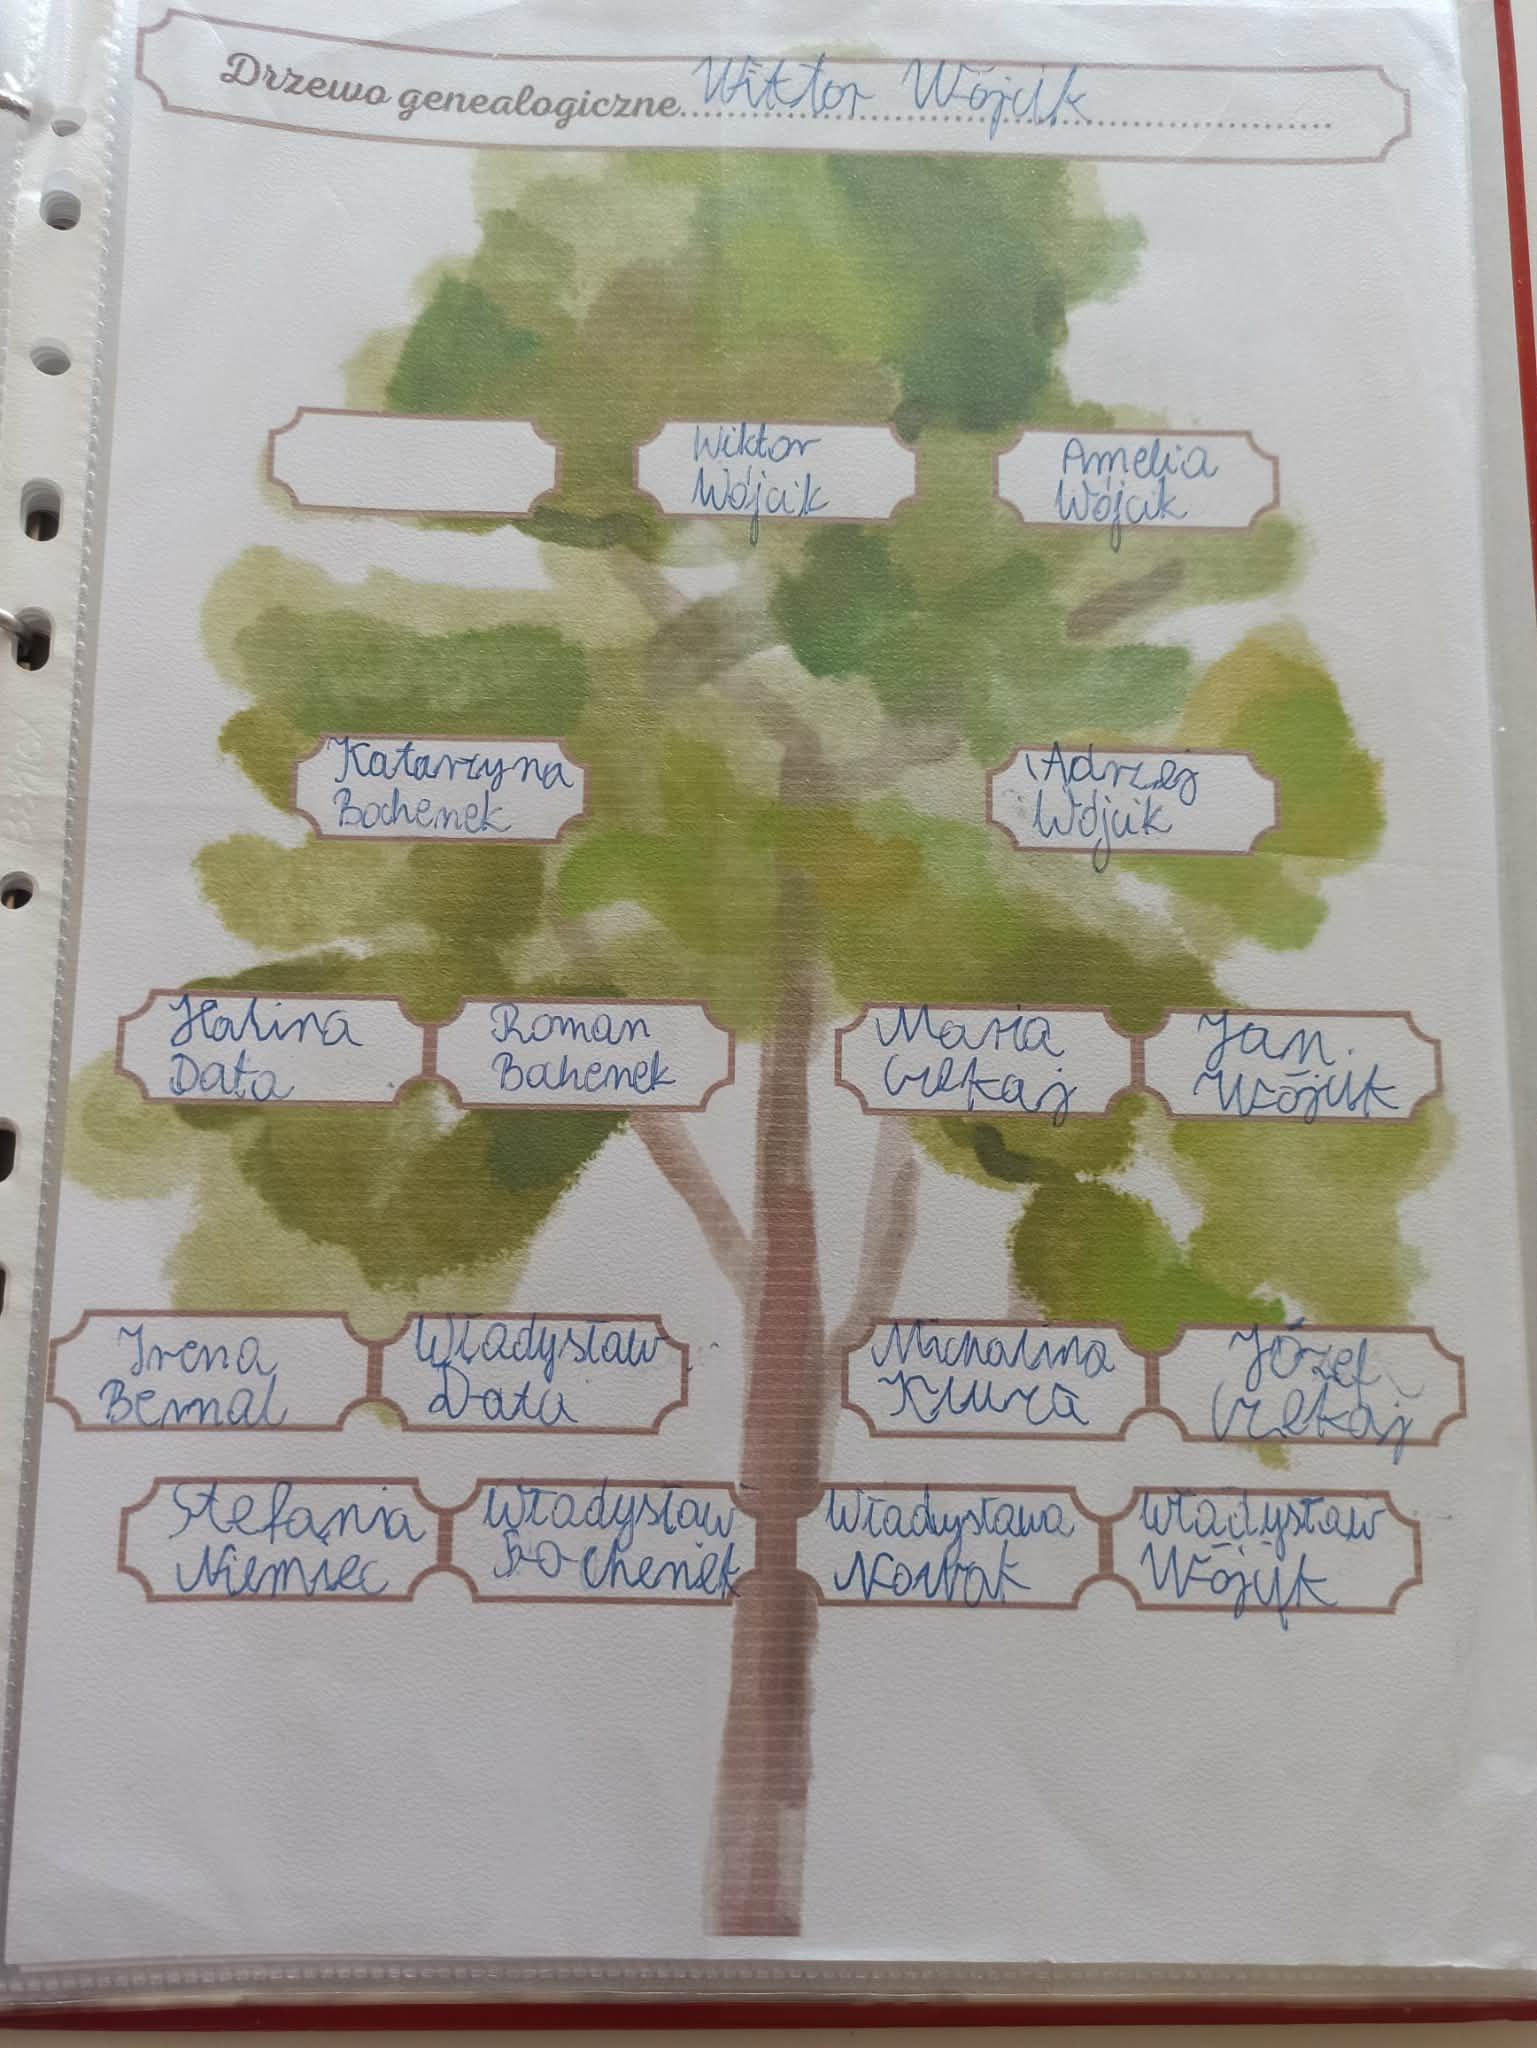 Drzewo genealogiczne Wiktor Wójcik
Wiktor
Wójcik
Amelia
Wójcik
Katarzyna
Bochenek
Adrzej
Wójcik
Halina
Data
Roman
Bochenek
Maria
Jan
Wójcik
Irena
Bernal
Władysław
Data
Michalina
Józef
Stefania
Niemiec
Władysław
Bochenek
Władysława
Nowak
Władysław
Wójcik